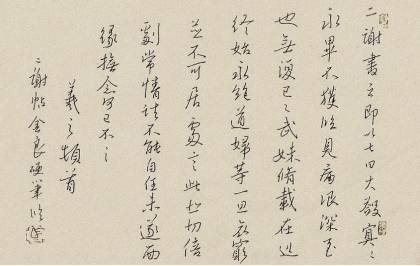 二謝書云即以七日大斂冥々
永畢不獲臨見痛恨深至
也無復已々武妹脩載在道
終始永絕道婦等一旦哀窮
並不可居處言此悲切倍
劇常情諸不能自任未遂面
緣撫念何已不一
羲之頓首
二謝帖金良硬筆臨